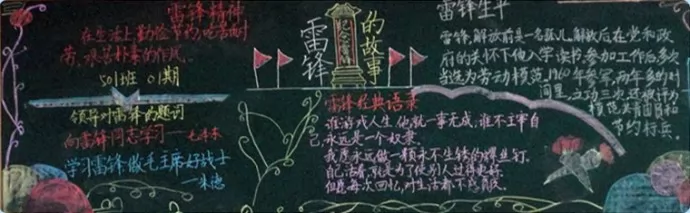 雷锋精神
在生活上勤俭节约,吃苦耐
劳,艰苦朴素的作风
501班 01期
领导对雷锋的题词
向雷锋同志学习——毛泽东
学习雷锋,做毛主席好战士
——朱德
雷锋
的故事
雷锋经典语录
谁游戏人生他就一事无成,谁不主宰自
己,永远是一个奴隶。
我愿永远做一颗永不生锈的螺丝钉。
自己活着,就是为了使别人过得更好。
但愿每次回忆,对生活都不感负疚。
雷锋生平
雷锋,解放前是一名孤儿,解放后在党和政
府的关怀下他入学读书,参加工作后,多次
当选为劳动模范,1960年参军,两年多的时
间里,立功三次,还被评为
模范共青团员和
节约标兵。